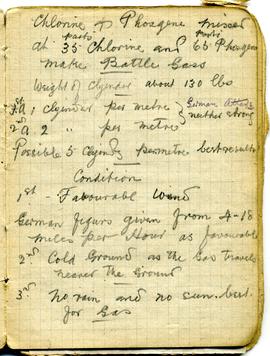 Chlorine & Phosgene mixed
at 35 parts Chlorine and 65 parts Phosgene
make Battle Gass
Weight of Clynder about 130 lbs
1st A 1 clynder per metre } German Attack
2nd A 2 " per metre } neither strong
Possible 5 Clyndrs per metre best results
Condition
1st - Favourable Wind
German figurs given from 4-18
miles per Hour as favourable
2nd Cold Ground as the Gas travels
nearer the Ground
3rd No rain and no sun. best
for Gas